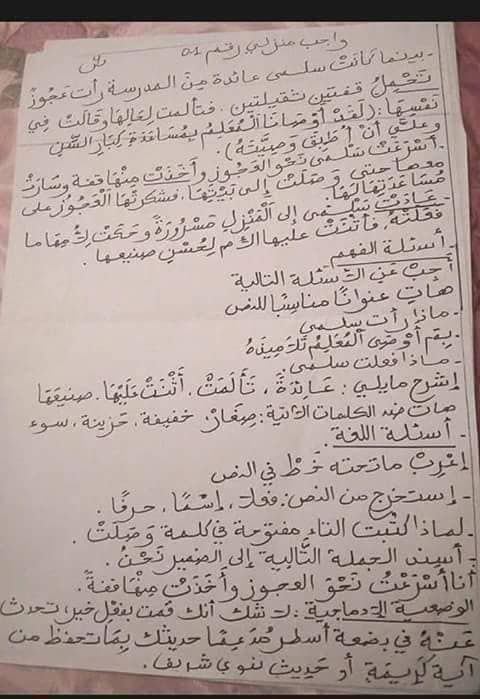 واجب منزلي رقم 01
- بينما كَانَتْ سلمى عائدة مِنَ المدرسة رأت عَجُوزً
تَحْمِلُ قفتين ثقيلتين. فتألمت لِحَالِهَا وَقَالَتْ فِي
نَفْسِهَا: (لَقَدْ أَوْصَانَا الْمُعَلِّمُ بِمُسَاعَدَةِ كِبَارِ السِّنِّ
وعلَيَّ أَنْ أُطَبِّقَ وَصِيَّتَهُ).
- أَسْرَعَتْ سَلْمَى نَحْوَ العَجُوزِ وَأَخَذَتْ مِنْهَا قفة وَسَارَتْ
معها حتى وَصَلَتْ إلى بَيْتِهَا. فشكرتْهَا الْعَجُوزُ على
مُسَاعَدَتِهَا لَهَا.
- عَادَتْ سَلْمَى إلى الْمَنْزِلِ مَسْرُورَةً وَحَكَتْ لِأُمِّهَا ما
فَعَلَتْهُ، فَأَثْنَتْ عليها الأم لِحُسْنِ صنيعها.
- أسئلة الفهم
أَجِبْ عَنِ الأسئلة التالية
هاتِ عنوانًا مناسِبًا للنص
- ماذا رأت سلمى
- بِمَ أَوْصَى الْمُعَلِّمُ تَلَامِيذَهُ
- ماذا فعلت سلمى
إشرح مايلي: عَائِدَةً، تَأَلَمَتْ، أَثْنَتْ عَلَيْهَا، صنيعَهَا
هات ضد الكلمات الآتية: صِغَارْ، خفيفة، حَزينة، سوء
- أسئلة اللغة.
إعْرِبْ ماتحته خَطْ في النص
- إستخرج من النص: فعلا، إسْمًا، حرفًا.
- لماذا كُتبت التاء مفتوحة في كلمة وَصَلَتْ.
- أسند الجملة التَّالِيَةَ إلى الضمير نَحْنُ.
أنا أَسْرَعْتُ نَحْوَ العجوز وأَخَذْتُ مِنْهَا قفةً.
الوضعية الإدماجية: لا شك أنك قمت بِفعْلِ خير، تحدث
عَنْهُ في بضعة أسطر مُدَعِّمًا حديثك بِمَا تحفظ من
آية كَرِيمَة أو حَدِيث نبوي شريف.